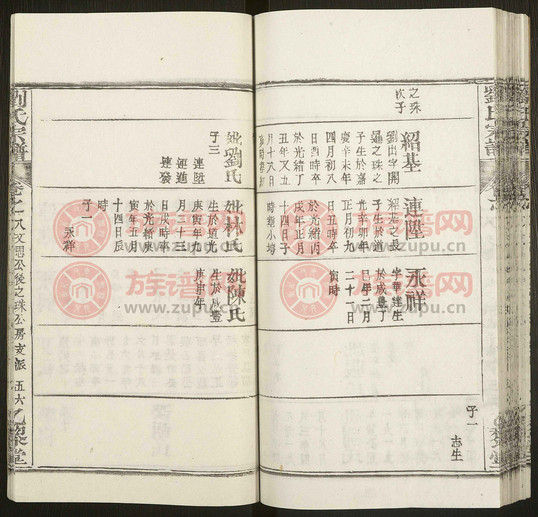 之珠
次子
紹基
劉出字開
子生於嘉
慶辛未年
四月初八
日酉時卒
於光緒丁
丑年又五
月十八日
連陞
紹基之長
子生於道
光辛卯年
正月初九
日丑時卒
於光緒丙
戌年正月
十四日子
永祥
字華達生
於咸豐丁
巳年二月
二十一日
寅時
子一
志生
妣劉氏
子三
連陞
連進
連發
妣林氏
生於道光
庚寅年九
月三十三
日戌時卒
於光緒庚
寅年五月
十四日辰
子一
永祥
妣陳氏
生於咸豐
庚申年
劉氏宗譜
八文思公後之珠公房支派
五六
乙藜堂
族譜
www.zupu.cn